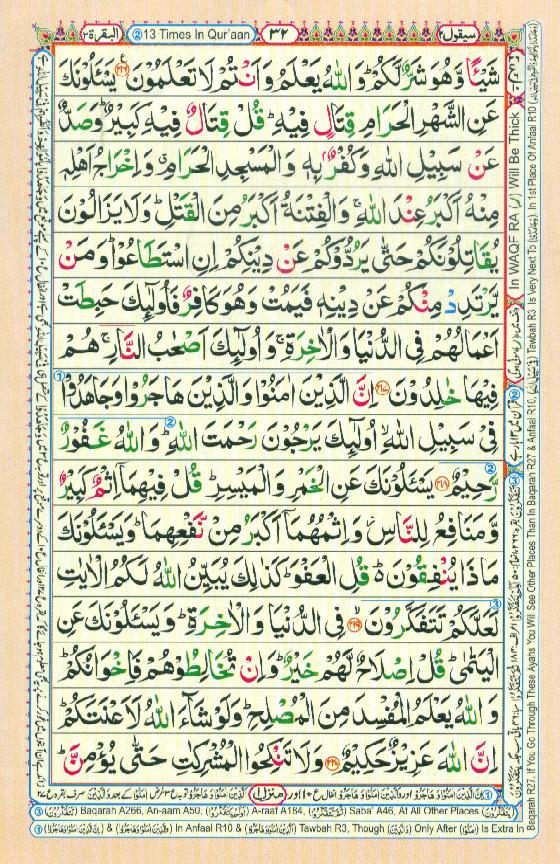 سيقول ٢
٣٢
② 13 Times In Qur'aan
البقرة ٢
شَيْئًا وَّهُوَ شَرٌّ لَّكُمْ ؕ وَاللّٰهُ يَعْلَمُ وَاَنْتُمْ لَا تَعْلَمُوْنَ ﴿۲۱۶﴾ يَسْئَلُوْنَكَ
عَنِ الشَّهْرِ الْحَرَامِ قِتَالٍ فِيْهِ ؕ قُلْ قِتَالٌ فِيْهِ كَبِيْرٌ ؕ وَصَدٌّ
عَنْ سَبِيْلِ اللّٰهِ وَكُفْرٌۢ بِهٖ وَالْمَسْجِدِ الْحَرَامِ ۗ وَاِخْرَاجُ اَهْلِهٖ
مِنْهُ اَكْبَرُ عِنْدَ اللّٰهِ ۚ وَالْفِتْنَةُ اَكْبَرُ مِنَ الْقَتْلِ ؕ وَلَا يَزَالُوْنَ
يُقَاتِلُوْنَكُمْ حَتّٰى يَرُدُّوْكُمْ عَنْ دِيْنِكُمْ اِنِ اسْتَطَاعُوْا ؕ وَمَنْ
يَّرْتَدِدْ مِنْكُمْ عَنْ دِيْنِهٖ فَيَمُتْ وَهُوَ كَافِرٌ فَاُولٰٓئِكَ حَبِطَتْ
اَعْمَالُهُمْ فِى الدُّنْيَا وَالْاٰخِرَةِ ۚ وَاُولٰٓئِكَ اَصْحٰبُ النَّارِ ۚ هُمْ
فِيْهَا خٰلِدُوْنَ ﴿۲۱۷﴾ اِنَّ الَّذِيْنَ اٰمَنُوْا وَالَّذِيْنَ هَاجَرُوْا وَجَاهَدُوْا ①
فِىْ سَبِيْلِ اللّٰهِ ۙ اُولٰٓئِكَ يَرْجُوْنَ رَحْمَتَ اللّٰهِ ؕ ② وَاللّٰهُ غَفُوْرٌ
رَّحِيْمٌ ② ﴿۲۱۸﴾ يَسْئَلُوْنَكَ عَنِ الْخَمْرِ وَالْمَيْسِرِ ؕ قُلْ فِيْهِمَاۤ اِثْمٌ كَبِيْرٌ
وَّمَنَافِعُ لِلنَّاسِ ؗ وَاِثْمُهُمَاۤ اَكْبَرُ مِنْ نَّفْعِهِمَا ؕ وَيَسْئَلُوْنَكَ
مَاذَا يُنْفِقُوْنَ ؕ قُلِ الْعَفْوَ ؕ كَذٰلِكَ يُبَيِّنُ اللّٰهُ لَكُمُ الْاٰيٰتِ
لَعَلَّكُمْ تَتَفَكَّرُوْنَ ③ ﴿۲۱۹﴾ فِى الدُّنْيَا وَالْاٰخِرَةِ ؕ وَيَسْئَلُوْنَكَ عَنِ
الْيَتٰمٰى ؕ قُلْ اِصْلَاحٌ لَّهُمْ خَيْرٌ ؕ وَاِنْ تُخَالِطُوْهُمْ فَاِخْوَانُكُمْ ؕ
وَاللّٰهُ يَعْلَمُ الْمُفْسِدَ مِنَ الْمُصْلِحِ ؕ وَلَوْ شَآءَ اللّٰهُ لَاَعْنَتَكُمْ ؕ
اِنَّ اللّٰهَ عَزِيْزٌ حَكِيْمٌ ﴿۲۲۰﴾ وَلَا تَنْكِحُوا الْمُشْرِكٰتِ حَتّٰى يُؤْمِنَّ ؕ
منزل ١
③ (تَتَفَكَّرُوْنَ) Baqarah A266, An-aam A50, (يَتَفَكَّرُوْنَ) A-raaf A184, (تَتَفَكَّرُوْا) Saba' A46, At All Other Places (يَتَفَكَّرُوْنَ)
① (وَالَّذِيْنَ هَاجَرُوْا) & (وَهَاجَرُوْا) In Anfaal R10 & (وَهَاجَرُوْا) Tawbah R3, Though (وَالَّذِيْنَ) Only After (اٰمَنُوْا) Is Extra In
Baqarah R27. If You Go Through These Ayahs You Will See Other Places Than In Baqarah R27 & Anfaal R10, Tawbah R3 Is Very Next To In 1st Place Of Anfaal R10
In WAQF RA (ر) Will Be Thick